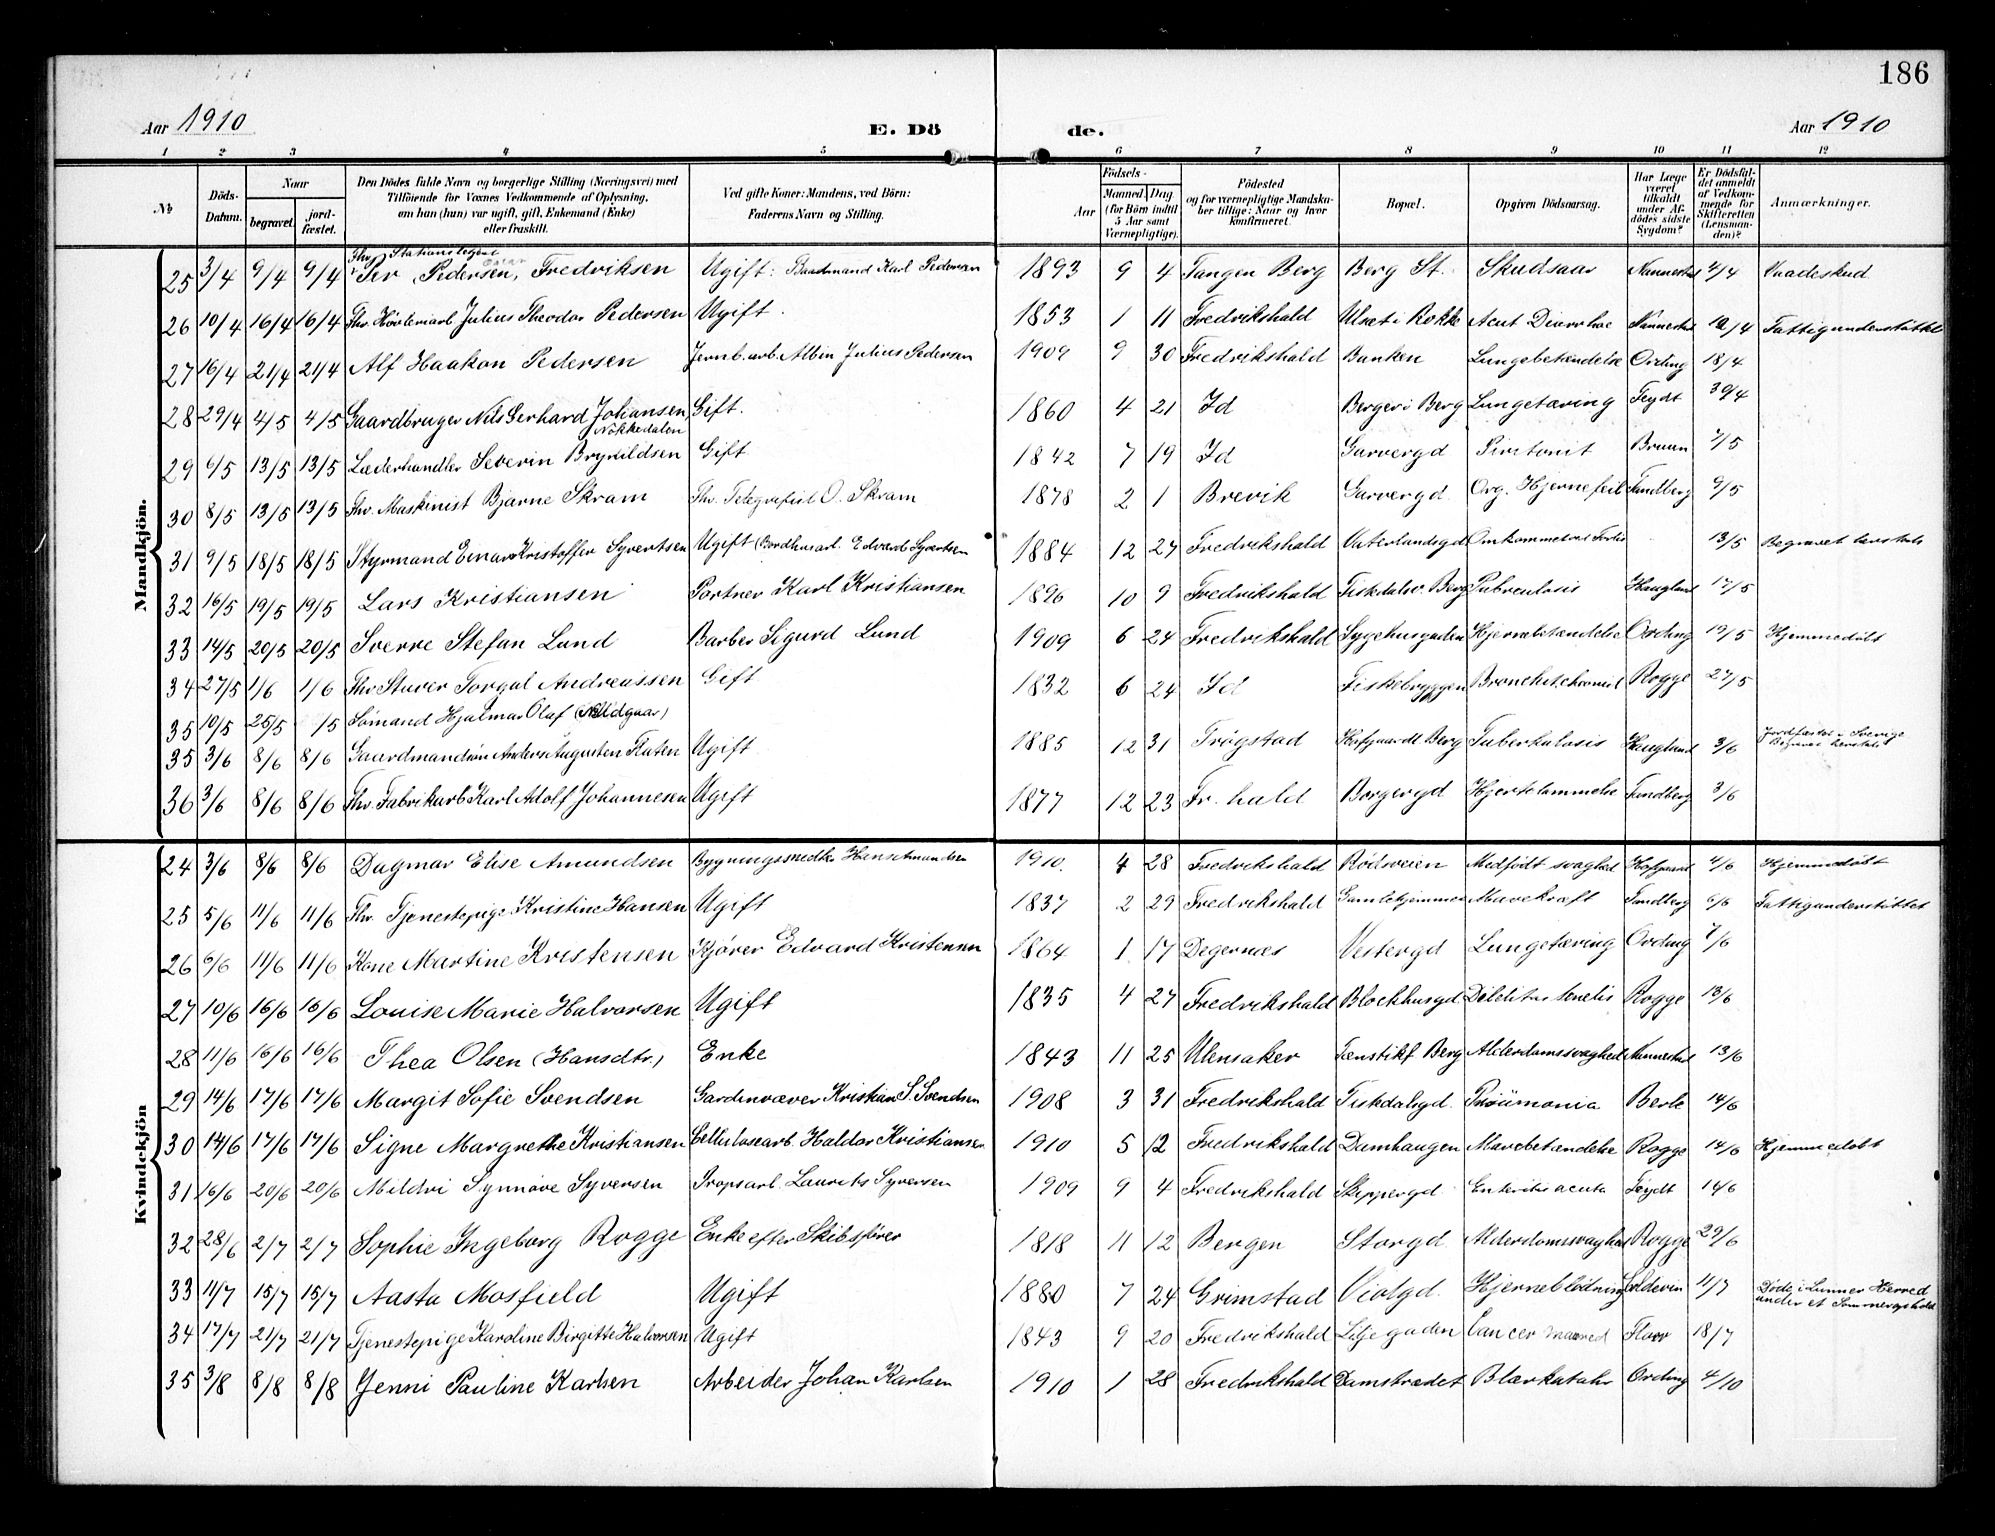 186
Aar 1910 E. Dö de. Aar 1910
1 2 3 4 5 6 7 8 9 10 11 12
№ Döds-Datum. Naar begravet. jord-fæstet. Den Dödes fulde Navn og borgerlige Stilling (Næringsvei) med Tilföiende for Voxnes Vedkommende af Oplysning, om han (hun) var ugift, gift, Enkemand (Enke) eller fraskilt. Ved gifte Koner: Mandens, ved Börn: Faderens Navn og Stilling. Födsels- Aar Maaned Dag (for Börn indtil 5 Aar samt Værnepligtige). Födested og for værnepligtige Mandska-ber tillige: Naar og hvor konfirmeret. Bopæl. Opgiven Dödsaarsag. Har Læge været tilkaldt under Af-dödes sidste Sygdom? Er Dödsfal-det anmeldt af Vedkom-mende for Skifteretten (Lensman-den)? Anmærkninger.
Mandkjön.
25 3/4 9/4 9/4 Per Pedersen, Fredriksen Ugift: Baadmand Karl Pedersen 1893 9 4 Tangen Berg Berg St. Skudsaar Nannestad 4/4 Vaadeskud
26 10/4 16/4 16/4 Fhv. Høvleriarb Julius Theodor Pedersen Ugift 1853 1 11 Fredrikshald Ulset i Rokke Acut Diarrhoe Nannestad 12/4 Fattigunderstøttet
27 16/4 21/4 21/4 Alf Haakon Pedersen Jernb. arb. Albin Julius Pedersen 1909 9 30 Fredrikshald Banken Lungebetændelse Ording 18/4
28 29/4 4/5 4/5 Gaardbruger Nils Gerhard Johansen Nokkedalen Gift. 1860 4 21 Id Berger i Berg Lungetæring Feydt 30/4
29 6/5 13/5 13/5 Læderhandler Severin Brynildsen Gift 1842 7 19 Id Garvergd Piritonit Bruun 7/5
30 8/5 13/5 13/5 Fhv. Maskinist Bjarne Skram Fhv. Telegrafist O. Skram 1878 2 1 Brevik Garvergd. Org. Hjernefeil Tandberg 9/5
31 9/5 18/5 18/5 Styrmand Einar Kristoffer Syvertsen Ugift (Bordhusarb. Edvard Syvertsen 1884 12 27 Fredrikshald Vaterlandsgd Omkommet ved Forlis 13/5
32 16/5 19/5 19/5 Lars Kristiansen Portner Karl Kristiansen 1896 10 9 Fredrikshald Fiskdalsv. Berg Tuberculosis Haugland 17/5
33 14/5 20/5 20/5 Sverre Stefan Lund Barber Sigurd Lund 1909 6 24 Fredrikshald Sygehusgaden Hjernebetændelse Ording 19/5 Hjemmedøbt
34 27/5 1/6 1/6 Fhv Stuver Torgal Andreassen Gift 1832 6 24 Id Fiskebryggen Bronchit. chronic Rogge 27/5
35 10/5 25/5 /5 Sømand Hjalmar Olaf
35 3/6 8/6 8/6 Gaardmandsøn Anders Augusten Fluten Ugift 1885 12 31 Trøgstad Hofgaardt Berg Tuberkulosis Haugland 3/6 Jordfæstet i Sverige
36 3/6 8/6 8/6 Fhv. Fabrikarb Karl Adolf Johannesen Ugift 1877 12 23 Fr. hald Borgergd Hjertelammelse Tandberg 3/6
Kvindekjön
24 3/6 8/6 8/6 Dagmar Elise Amundsen Bygningssnedker Hans Amundsen 1910. 4 28 Fredrikshald Rødsveien Medfødt svaghed Hofgaard 4/6 Hjemmedøbt
25 5/6 11/6 11/6 Fhv. Tjenestepige Kristine Hansen Ugift 1837 2 29 Fredrikshald Gamlehjemmet Mavekræft Tandberg 6/6 Fattigunderstøttet
26 6/6 11/6 11/6 Kone Martine Kristensen Kjører Edvard Kristensen 1864 1 17 Degernæs Vestergd Lungetæring Ording 7/6
27 10/6 16/6 16/6 Louise Marie Halvorsen Ugift 1835 4 27 Fredrikshald Blockhusgd. Rogge 13/6
28 11/6 16/6 16/6 Thea Olsen (Hansdtr.) Enke 1843 11 25 Ulensaker Tænstikf Berg Alderdomssvaghed Nannestad 13/6
29 14/6 17/6 17/6 Margit Sofie Svendsen Gardinvæver Kristian S. Svendsen 1908 3 31 Fredrikshald Fiskdalsgd. Pnëumonia Berle 14/6
30 14/6 17/6 17/6 Signe Margrethe Kristiansen Cellulosearb. Haldor Kristiansen 1910 5 12 Fredrikshald Damhaugen Mavebetændelse Rogge 14/6 Hjemmedøbt
31 16/6 20/6 20/6 Mildri Synnøve Syversen Laurits Syversen 1909 9 4 Fredrikshald Skippergd. Enteritis acuta Feydt 14/6
32 28/6 2/7 2/7 Sophie Ingeborg Rogge Enke efter Skibsfører 1818 11 12 Bergen Storgd. Alderdomssvaghed Rogge 29/6
33 11/7 15/7 15/7 Aasta Mosfield Ugift 1880 7 24 Grimstad Violgd. Hjerneblødning Soldevin 11/7 Døde i Lunner Herred under et Sommerophold
34 17/7 21/7 21/7 Tjenestepige Karoline Birgitte Halvorsen Ugift 1843 9 20 Fredrikshald Liljegaden Cancer Florr 18/7
35 3/8 8/8 8/8 Jenni Pauline Karlsen Arbeider Johan Karlsen 1910 1 28 Fredrikshald Damstrædet Blærkatahr Ording 4/10